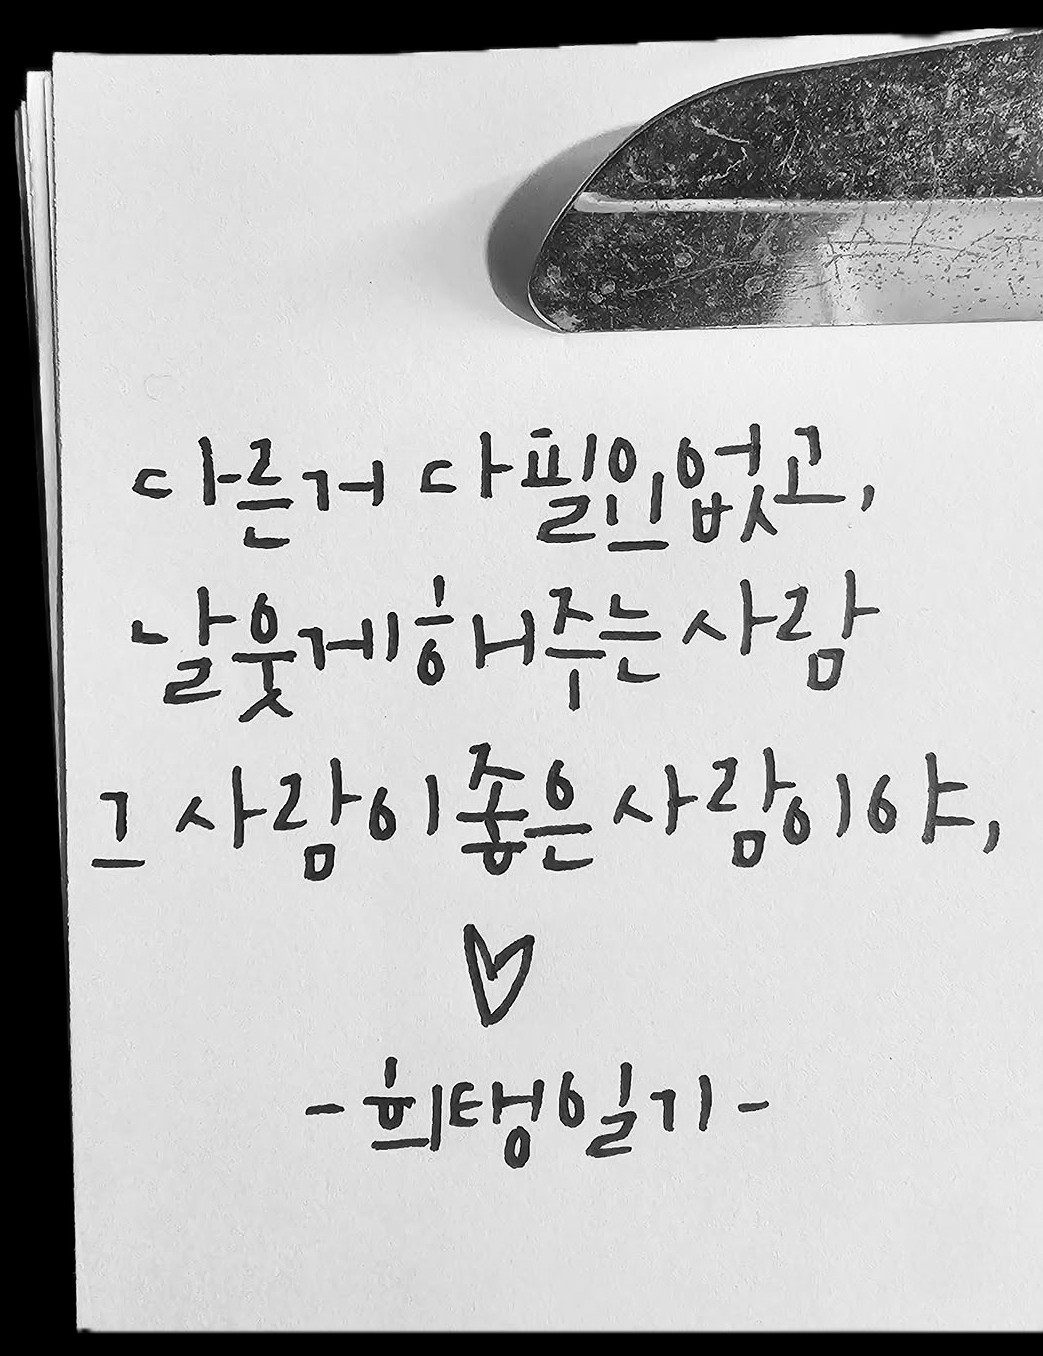 다른거 다 필요없고,
날 웃게 해주는 사람
그 사람이 좋은 사람이야,
-희탱일기-